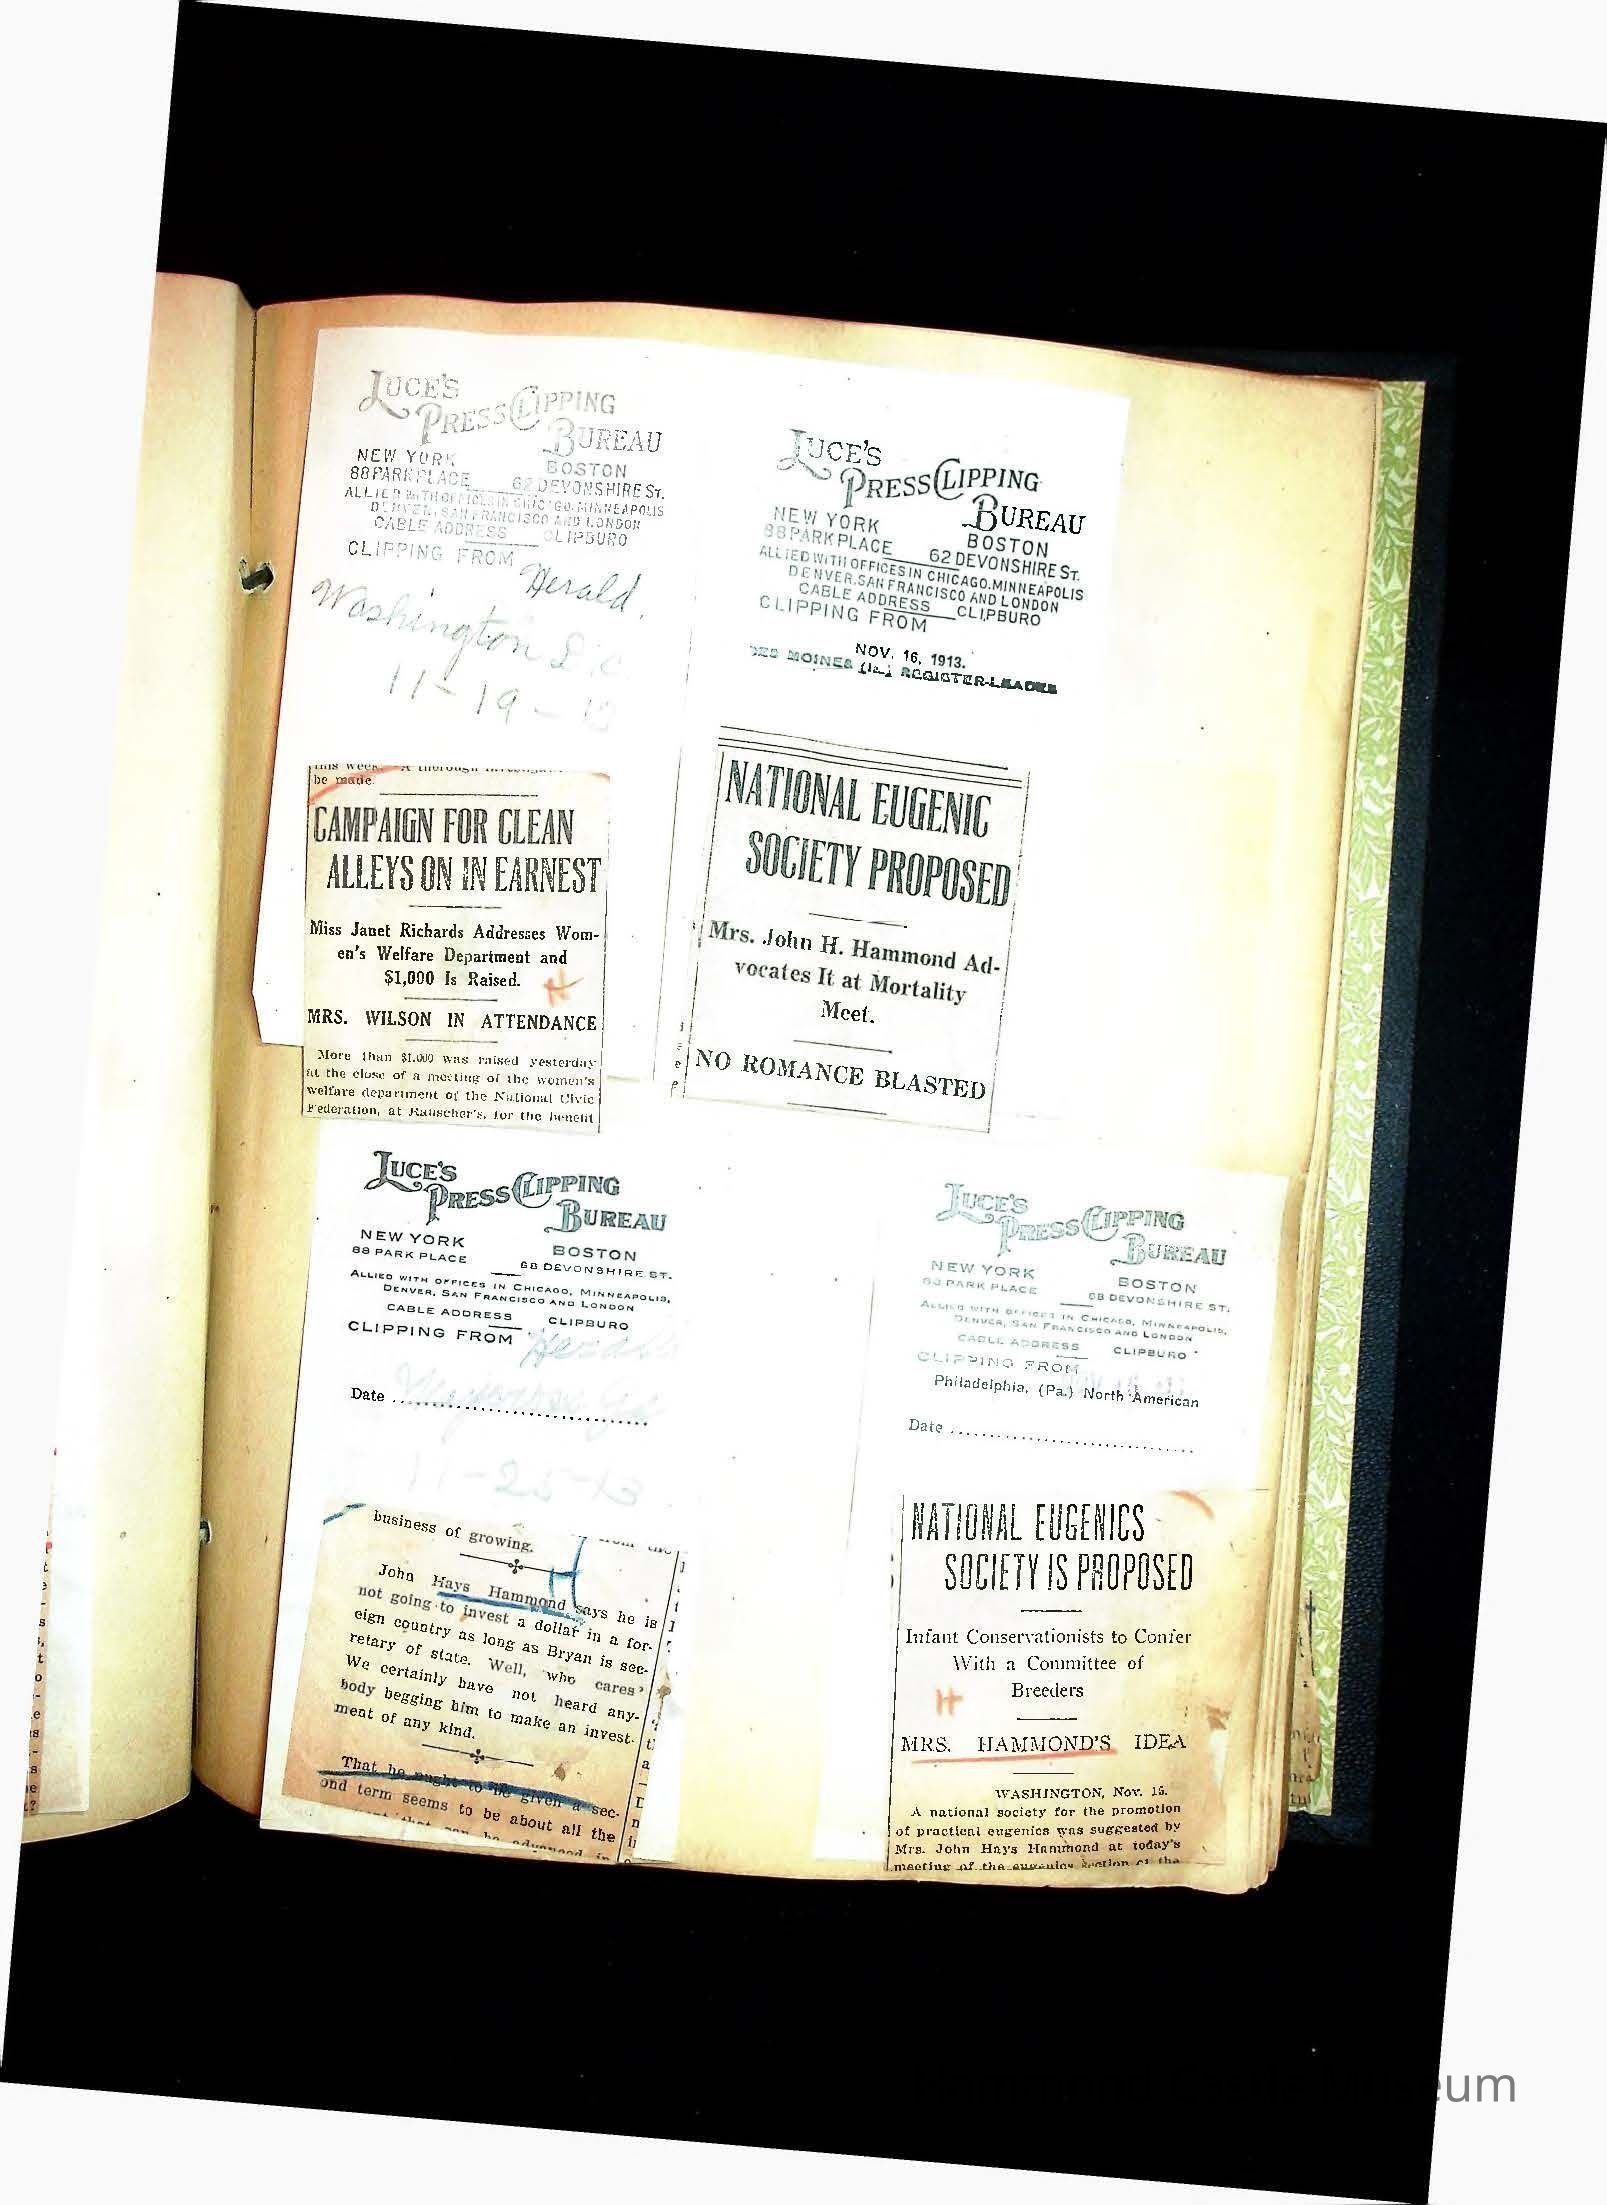 LUCE'S
PRESS CLIPPING
BUREAU
NEW YORK
BOSTON
88 PARK PLACE
62 DEVONSHIRE ST.
ALLIED WITH OFFICES IN CHICAGO, MINNEAPOLIS
DENVER, SAN FRANCISCO AND LONDON
CABLE ADDRESS
CLIPBURO
CLIPPING FROM
Herald,
Washington D.C.
11-19-13
this week. A thorough
be made.
CAMPAIGN FOR CLEAN
ALLEYS ON IN EARNEST
Miss Janet Richards Addresses Wom-
en's Welfare Department and
$1,000 Is Raised.
H
MRS. WILSON IN ATTENDANCE
More than $1,000 was raised yesterday
at the close of a meeting of the women's
welfare department of the National Civic
Federation, at Rauscher's, for the benefit
LUCE'S
PRESS CLIPPING
BUREAU
NEW YORK
BOSTON
88 PARK PLACE
62 DEVONSHIRE ST.
ALLIED WITH OFFICES IN CHICAGO, MINNEAPOLIS
DENVER, SAN FRANCISCO AND LONDON
CABLE ADDRESS
CLIPBURO
CLIPPING FROM
NOV. 16, 1913.
DES MOINES (Ia.) REGISTER-LEADER
NATIONAL EUGENIC
SOCIETY PROPOSED
Mrs. John H. Hammond Ad-
vocates It at Mortality
Meet.
NO ROMANCE BLASTED
LUCE'S
PRESS CLIPPING
BUREAU
NEW YORK
BOSTON
88 PARK PLACE
68 DEVONSHIRE ST.
ALLIED WITH OFFICES IN CHICAGO, MINNEAPOLIS,
DENVER, SAN FRANCISCO AND LONDON
CABLE ADDRESS
CLIPBURO
CLIPPING FROM
Herald
Date
11-25-13
business of growing.
H
John Hays Hammond says he is
not going to invest a dollar in a for-
eign country as long as Bryan is sec-
retary of state. Well, who cares?
We certainly have not heard any-
body begging him to make an invest-
ment of any kind.
That he ought to be given a sec-
ond term seems to be about all the
that can be advanced in
LUCE'S
PRESS CLIPPING
BUREAU
NEW YORK
BOSTON
88 PARK PLACE
68 DEVONSHIRE ST.
ALLIED WITH OFFICES IN CHICAGO, MINNEAPOLIS,
DENVER, SAN FRANCISCO AND LONDON
CABLE ADDRESS
CLIPBURO
CLIPPING FROM
Philadelphia, (Pa.) North American
Date
NATIONAL EUGENICS
SOCIETY IS PROPOSED
Infant Conservationists to Confer
With a Committee of
Breeders
H
MRS. HAMMOND'S IDEA
WASHINGTON, Nov. 15.
A national society for the promotion
of practical eugenics was suggested by
Mrs. John Hays Hammond at today's
meeting of the eugenics section of the
eum